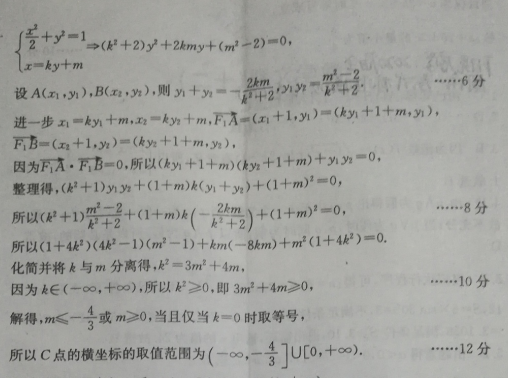 {x²/2+y²=1 x=ky+m ⇒(k²+2)y²+2kmy+(m²-2)=0,
设 A(x₁,y₁),B(x₂,y₂),则 y₁+y₂=-2km/(k²+2),y₁y₂=(m²-2)/(k²+2). ……6分
进一步 x₁=ky₁+m,x₂=ky₂+m,F₁A=(x₁+1,y₁)=(ky₁+1+m,y₁),
F₁B=(x₂+1,y₂)=(ky₂+1+m,y₂),
因为F₁A·F₁B=0,所以(ky₁+1+m)(ky₂+1+m)+y₁y₂=0,
整理得,(k²+1)y₁y₂+(1+m)k(y₁+y₂)+(1+m)²=0,
所以(k²+1)(m²-2)/(k²+2)+(1+m)k(-2km/(k²+2))+(1+m)²=0, ……8分
所以(1+4k²)(4k²-1)(m²-1)+km(-8km)+m²(1+4k²)=0.
化简并将 k 与 m 分离得,k²=3m²+4m,
因为 k∈(-∞,+∞),所以 k²≥0,即 3m²+4m≥0, ……10分
解得,m≤-4/3或 m≥0,当且仅当 k=0 时取等号,
所以 C 点的横坐标的取值范围为(-∞,-4/3]∪[0,+∞). ……12分